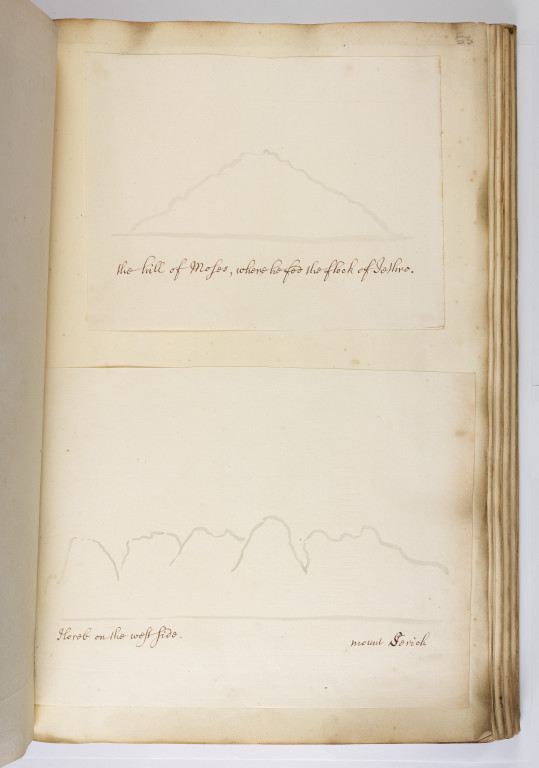 the hill of Moses, where he fed the flock of Jethro.
Horeb on the west side.
mount Serich